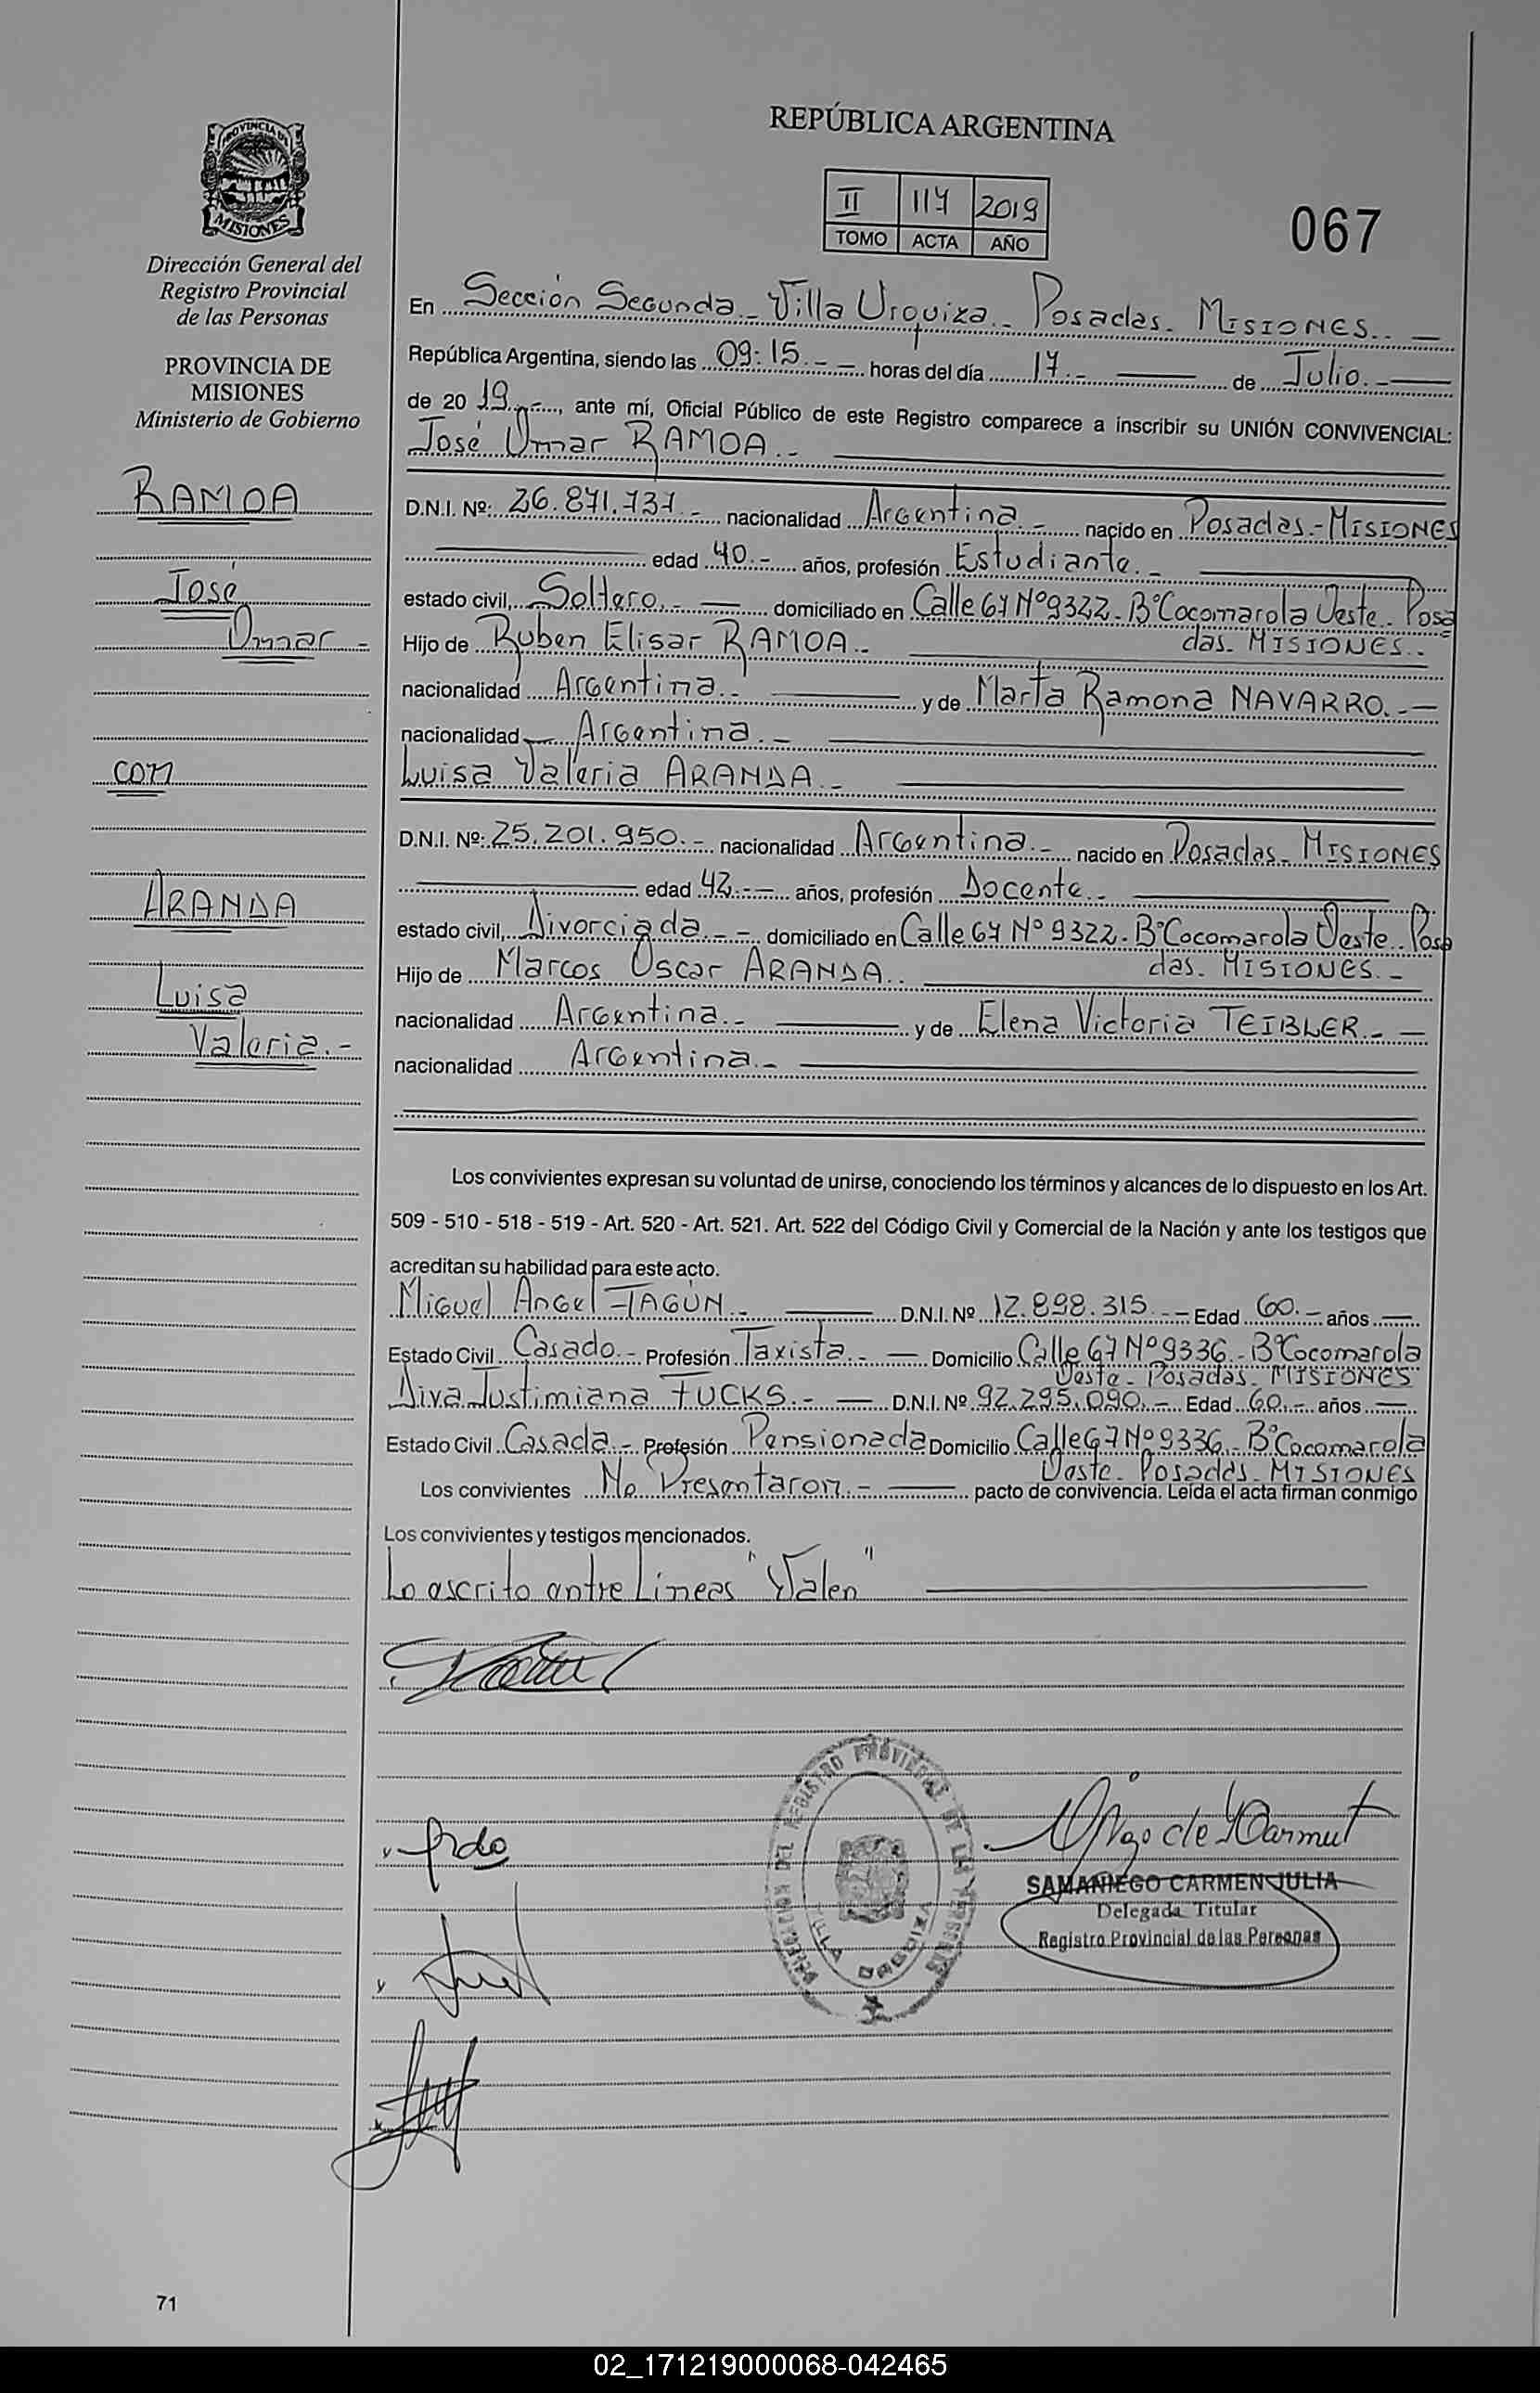 REPÚBLICA ARGENTINA
II 117 2019
TOMO ACTA AÑO
067
PROVINCIA DE
MISIONES
Dirección General del
Registro Provincial
de las Personas
PROVINCIA DE
MISIONES
Ministerio de Gobierno
RAMOA
José
Omar.-
con
ARANDA
Luisa
Valeria.-
En Sección Segunda.- Villa Urquiza.- Posadas.- MISIONES.-
República Argentina, siendo las 09:15.- horas del día 17.- de Julio.-
de 2019.-, ante mí, Oficial Público de este Registro comparece a inscribir su UNIÓN CONVIVENCIAL:
José Omar RAMOA.-
D.N.I. Nº: 26.871.737.- nacionalidad Argentina.- nacido en Posadas.- MISIONES
edad 40.- años, profesión Estudiante.-
estado civil, Soltero.- domiciliado en Calle 67 Nº 9322.- Bº Cocomarola Oeste.- Posa
das.- MISIONES.-
Hijo de Ruben Elisar RAMOA.-
nacionalidad Argentina.- y de Marta Ramona NAVARRO.-
nacionalidad Argentina.-
Luisa Valeria ARANDA.-
D.N.I. Nº: 25.201.950.- nacionalidad Argentina.- nacido en Posadas.- MISIONES
edad 42.- años, profesión Docente.-
estado civil, Divorciada.- domiciliado en Calle 67 Nº 9322.- Bº Cocomarola Oeste.- Posa
das.- MISIONES.-
Hijo de Marcos Oscar ARANDA.-
nacionalidad Argentina.- y de Elena Victoria TEIBLER.-
nacionalidad Argentina.-
Los convivientes expresan su voluntad de unirse, conociendo los términos y alcances de lo dispuesto en los Art.
509 - 510 - 518 - 519 - Art. 520 - Art. 521. Art. 522 del Código Civil y Comercial de la Nación y ante los testigos que
acreditan su habilidad para este acto.
Miguel Angel TAGUN.- D.N.I. Nº 12.898.315.- Edad 60.- años
Estado Civil Casado.- Profesión Taxista.- Domicilio Calle 67 Nº 9336.- Bº Cocomarola
Oeste.- Posadas.- MISIONES
Diva Justimiana FUCKS.- D.N.I. Nº 92.295.090.- Edad 60.- años
Estado Civil Casada.- Profesión Pensionada Domicilio Calle 67 Nº 9336.- Bº Cocomarola
Oeste.- Posadas.- MISIONES
Los convivientes No Presentaron.- pacto de convivencia. Leída el acta firman conmigo
Los convivientes y testigos mencionados.
Lo escrito entre Líneas "Valen"
REGISTRO PROVINCIAL DE LAS PERSONAS
VILLA URQUIZA
SAMANIEGO CARMEN JULIA
Delegada Titular
Registro Provincial de las Personas
71
02_171219000068-042465